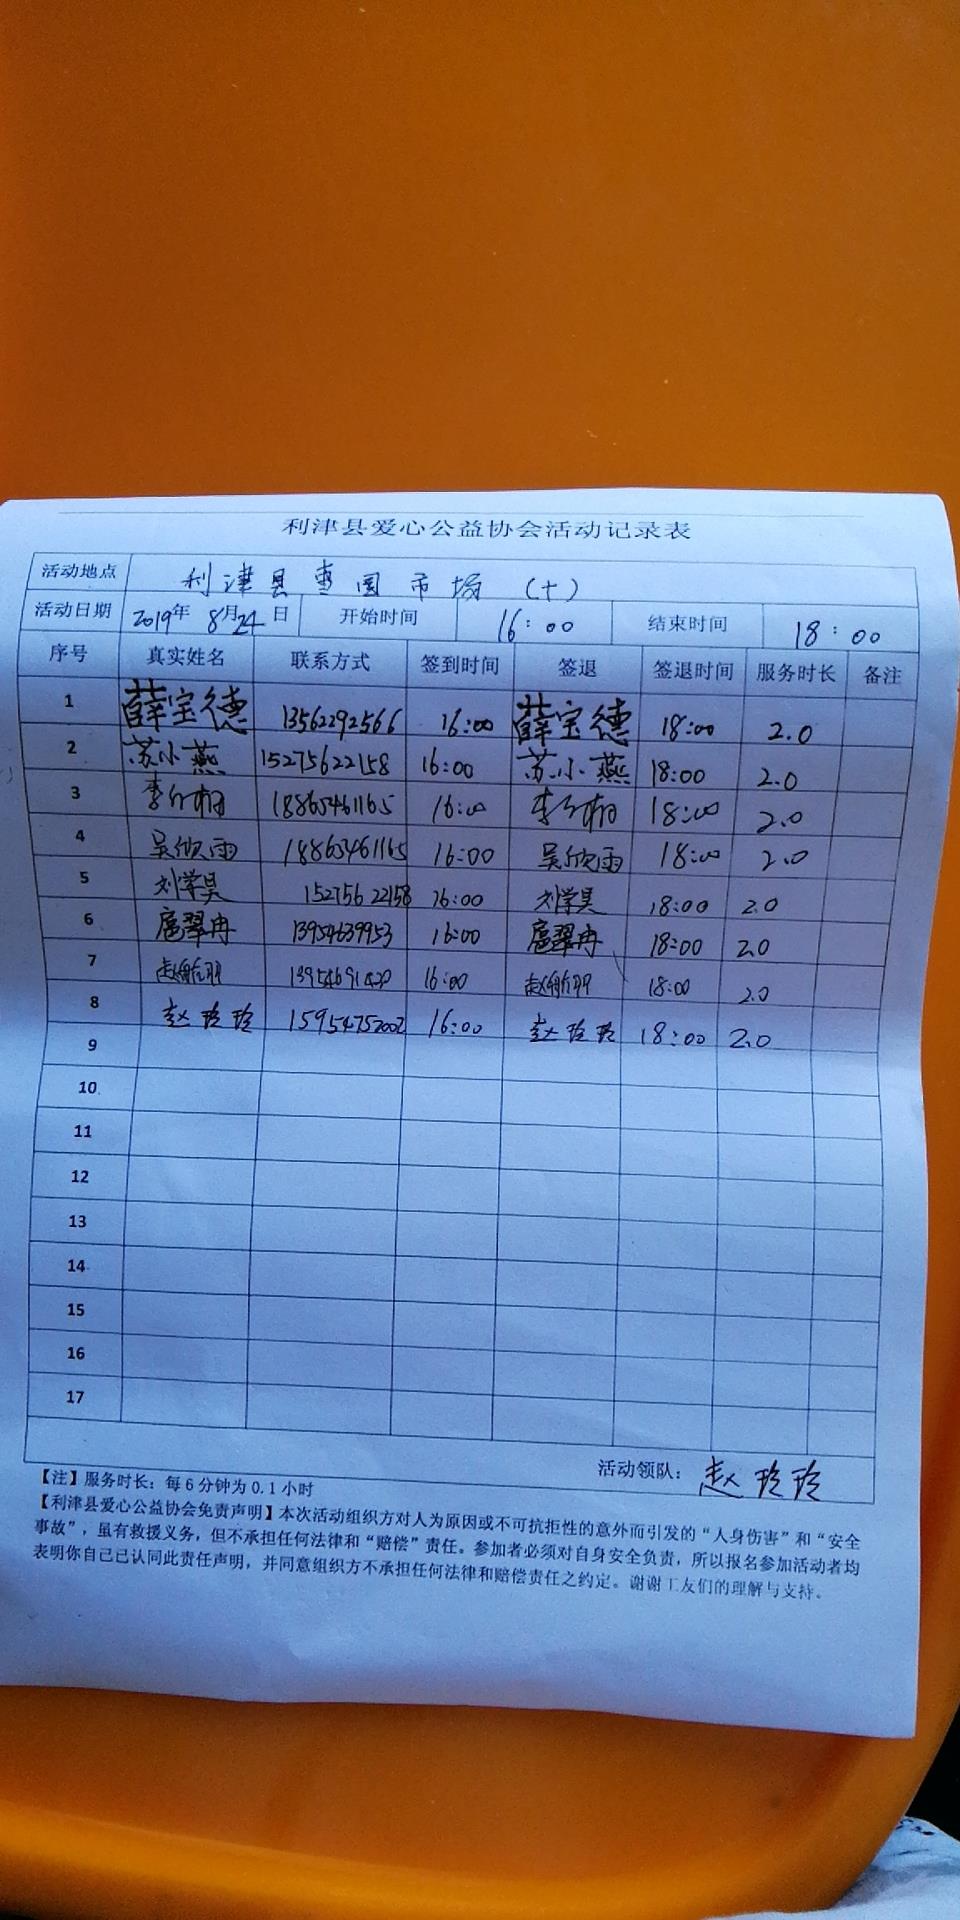 利津县爱心公益协会活动记录表
活动地点 利津县枣园市场（十）
活动日期 2019年 8月24日 开始时间 16：00 结束时间 18：00
序号 真实姓名 联系方式 签到时间 签退 签退时间 服务时长 备注
1 薛宝德 13562292566 16:00 薛宝德 18:00 2.0
2 苏小燕 15275622158 16:00 苏小燕 18:00 2.0
3 18865461165 16:00 18:00 2.0
4 吴欣雨 18863461165 16:00 吴欣雨 18:00 2.0
5 刘学昊 15275622158 16:00 刘学昊 18:00 2.0
6 扈翠冉 13954639953 16:00 扈翠冉 18:00 2.0
7 16:00 18:00 2.0
8 赵玲玲 15954752002 16:00 赵玲玲 18:00 2.0
9
10
11
12
13
14
15
16
17
活动领队： 赵玲玲
【注】服务时长：每6分钟为0.1小时
【利津县爱心公益协会免责声明】本次活动组织方对人为原因或不可抗拒性的意外而引发的“人身伤害”和“安全
事故”，虽有救援义务，但不承担任何法律和“赔偿”责任。参加者必须对自身安全负责，所以报名参加活动者均
表明你自己已认同此责任声明，并同意组织方不承担任何法律和赔偿责任之约定。谢谢工友们的理解与支持。